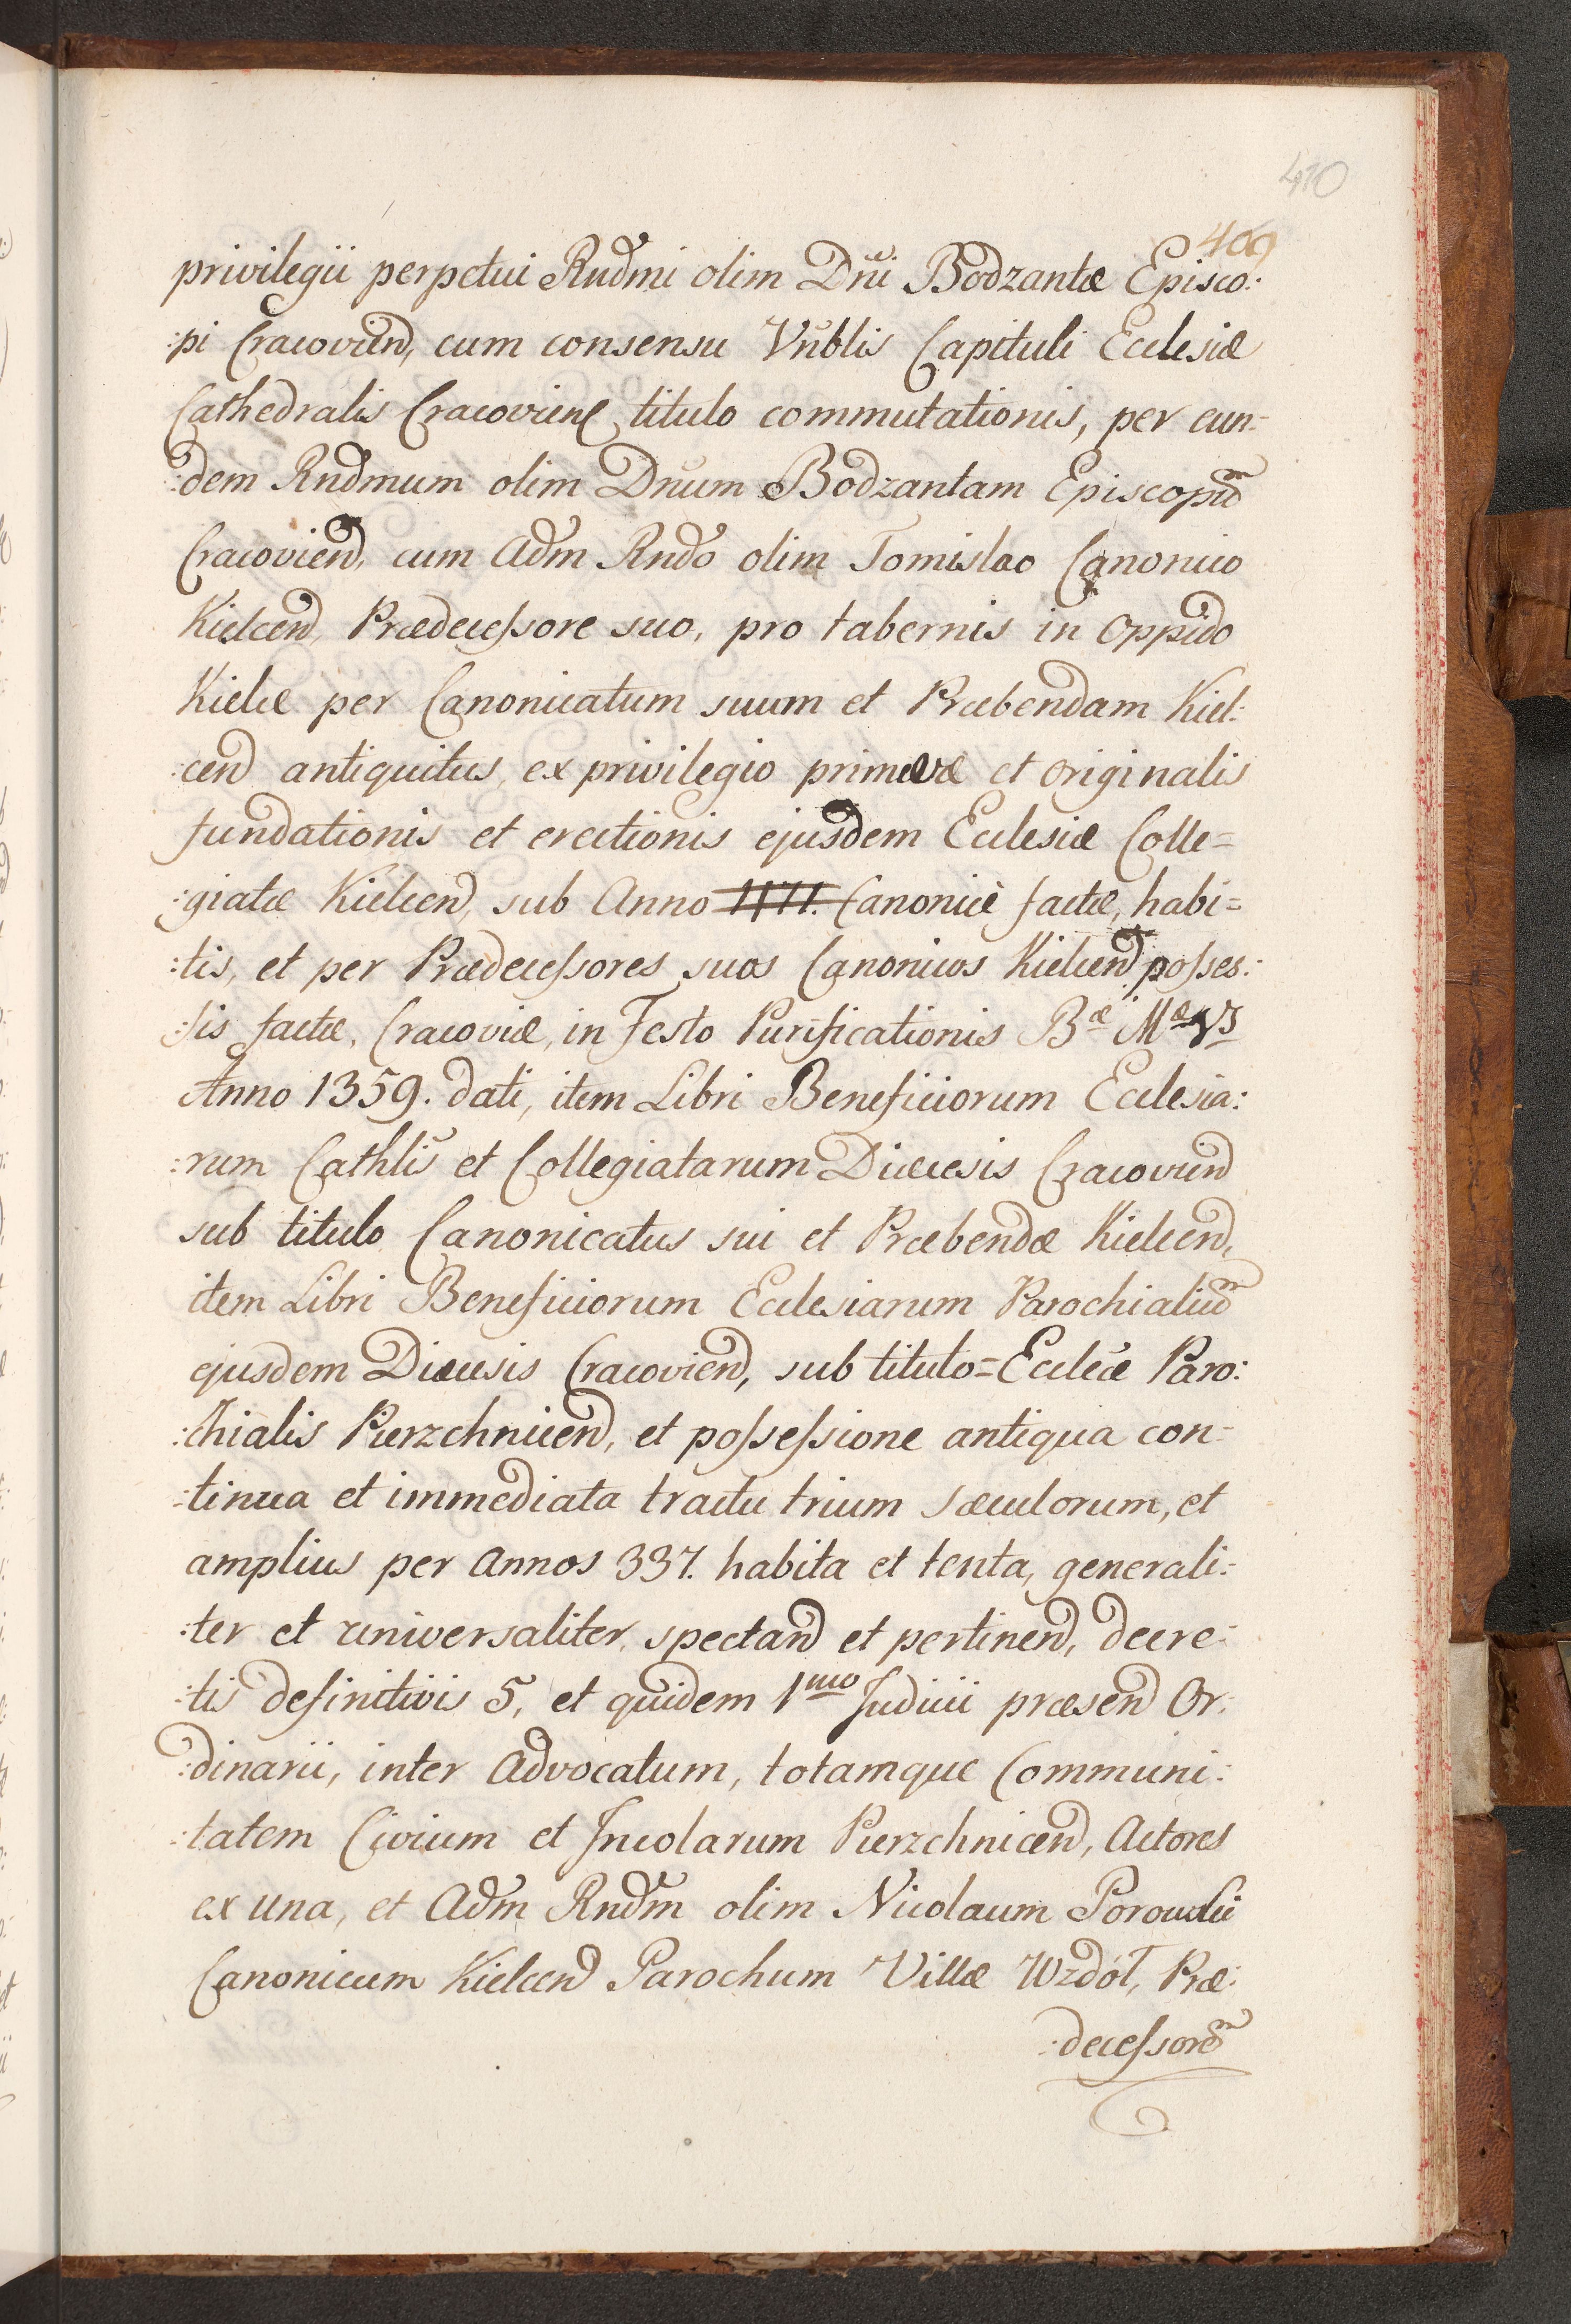 410
409
privilegii perpetui Rndmi olim Dni Bodzantæ Episco:
:pi Cracovien, cum consensu Vnblis Capituli Ecclesiæ
Cathedralis Cracovien, titulo commutationis, per eun-
:dem Rndmum olim Dnum Bodzantam Episcopum
Cracovien, cum Adm Rndo olim Tomislao Canonico
Kielcen, Prædecessore suo, pro tabernis in Oppido
Kielce per Canonicatum suum et Præbendam Kiel:
:cen antiquitus, ex privilegio primævæ et originalis
fundationis et erectionis ejusdem Ecclesiæ Colle=
:giatæ Kielcen, sub Anno 1171. Canonicè factæ, habi=
:tis, et per Prædecessores suos Canonicos Kielcen posses:
:sis factæ, Cracoviæ, in Festo Purificationis Bæ Mæ Vs
Anno 1359. dati, item Libri Beneficiorum Ecclesia:
:rum Cathlis et Collegiatarum Diæcesis Cracovien
sub titulo Canonicatus sui et Præbendæ Kielcen,
item Libri Beneficiorum Ecclesiarum Parochialium
ejusdem Diæcesis Cracovien, sub titulo=Eccleæ Paro:
:chialis Pierzchnicen, et possessione antiqua con-
:tinua et immediata tractu trium sæculorum, et
amplius per annos 337. habita et tenta, generali:
:ter et universaliter, spectan et pertinen, decre:
:tis definitivis 5, et quidem 1mo Judicii præsen Or:
:dinarii, inter Advocatum, totamque Communi:
:tatem Civium et Incolarum Pierzchnicen, Actores
ex una, et Adm Rndm olim Nicolaum
Canonicum Kielcen Parochum Villæ Wzdół, Præ:
:decessorem